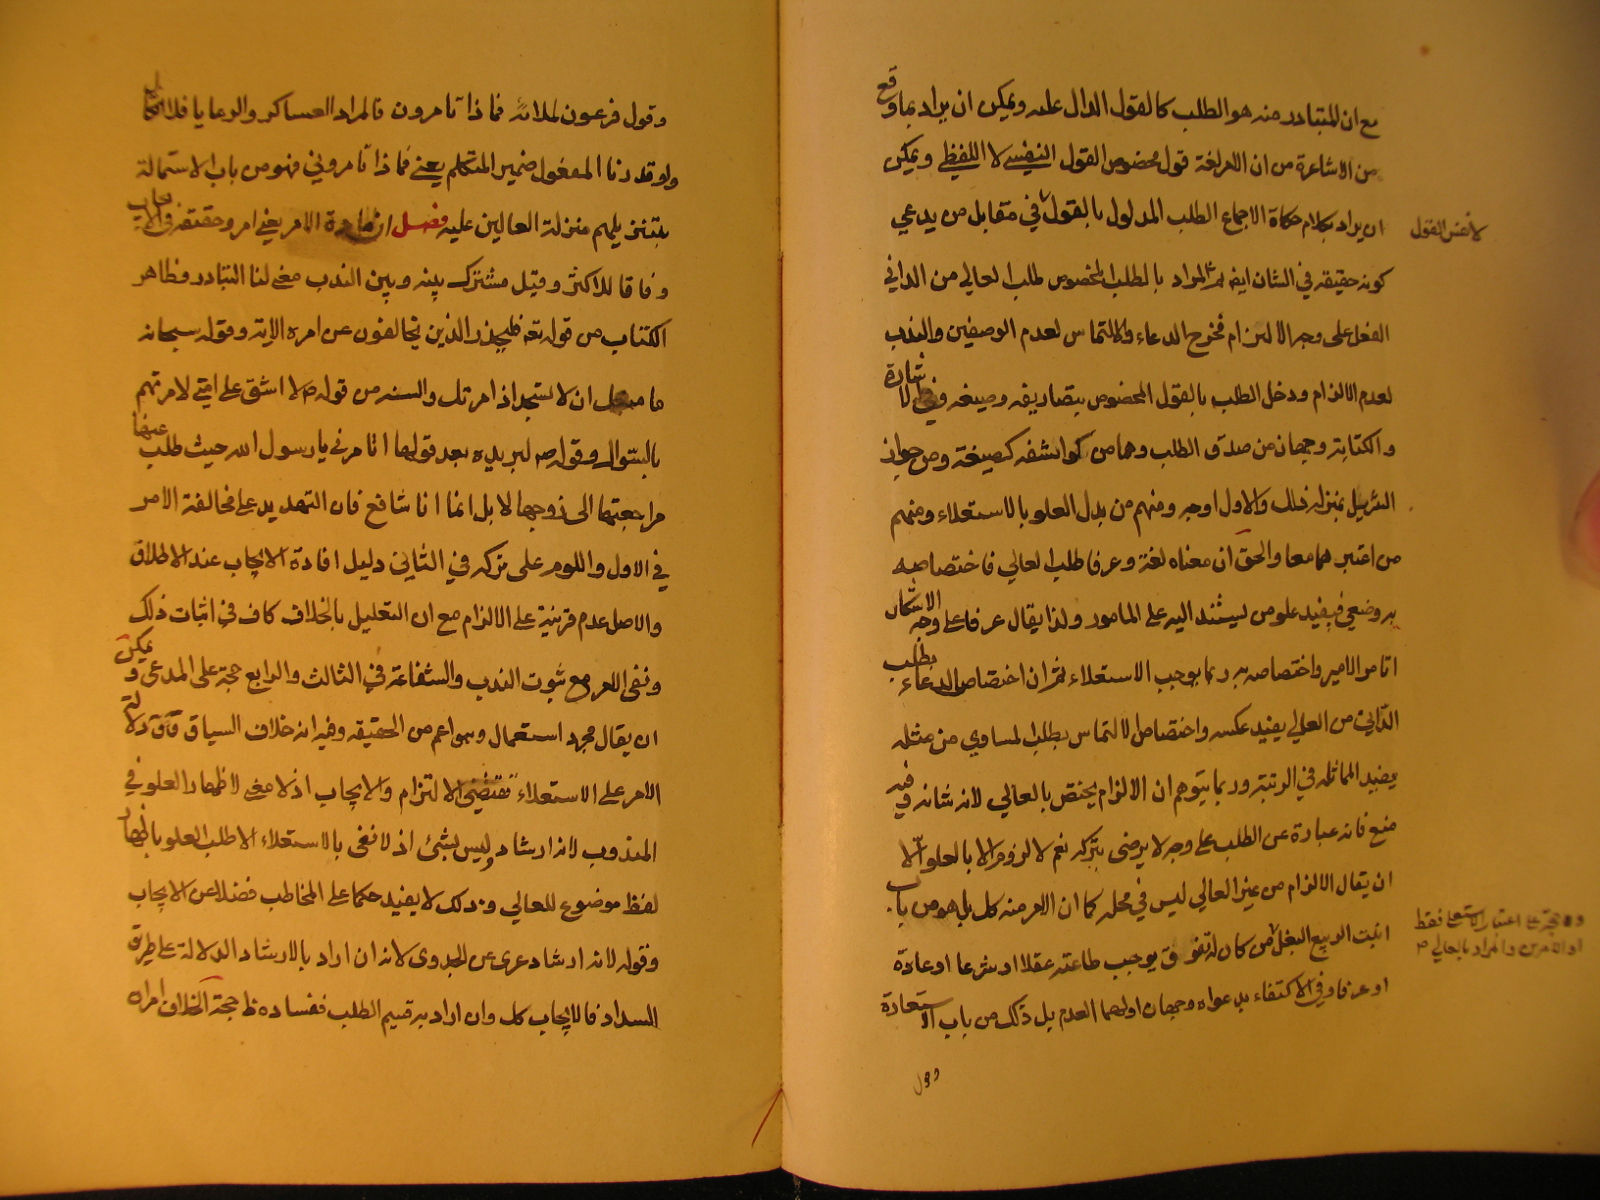 مع ان المتبادر منه هو الطلب كالقول الدال عليه ويمكن ان يراد بما وقع
من الاشاعرة من ان الامر لغة قول مخصوص القول النفسي لا اللفظي ويمكن
ان يراد بكلام حكاة الاجماع الطلب المدلول بالقول في مقابل من يدعي
لا نفس القول
كونه حقيقة في الشان ايضا ثم المراد بالطلب المخصوص طلب العالي من الداني
الفعل على وجه الالزام فخرج الدعاء والالتماس لعدم الوصفين والندب
لعدم الالزام ودخل الطلب بالقول المخصوص بتصاريفه وصيغه وفي الاشارة
والكتابة وجهان من صدق الطلب وهما من كواشفه كصيغة ومن جواز
التنزيل بمنزلة ذلك والاول اوجه ومنهم من بدل العلو بالاستعلاء ومنهم
من اعتبر هما معا والحق ان معناه لغة وعرفا طلب العالي فاختصاصه
به وضعي فيفيد علو من ليستند اليه على المامور ولذا يقال عرفا على وجه الانكار
اتامر الامير واختصاصه به ربما يوجب الاستعلاء ثم ان اختصاص الدعاء بطلب
الداني من العالي يفيد عكسه واختصاص الالتماس بطلب المساوي من مثله
يفيد المماثلة في الرتبة وربما يتوهم ان الالزام يختص بالعالي لانه شانه وفيه
منع فانه عبارة عن الطلب على وجه لا يرضى بتركه نعم لا لزوم الا بالعلو الا
ان يقال الالزام من غير العالي ليس في محله كما ان الامر منه كل بل هو من باب
انبت الربيع البقل من كان له تفوق يوجب طاعته عقلا او شرعا او عادة
او عرفا وفي الاكتفاء بدعواه وجهان اولهما العدم بل ذلك من باب الاستعارة
وقول
وقول فرعون لملائه فماذا تامرون فالمراد العساكر والرعايا فلا
ولو قدرنا المفعول ضمير المتكلم يعني فماذا تامروني فهو من باب الاستمالة
بتنزيلهم منزلة العالين عليه فصل ان مادة الامر يعني امر وحقيقة في الايجاب
وفاقا للاكثر وقيل مشترك بينه وبين الندب معنى لنا التبادر وظاهر
الكتاب من قوله تعه فليحذر الذين يخالفون عن امره الاية وقوله سبحانه
ما منعك ان لا تسجد اذ امرتك والسنه من قوله ص لا اشق على امتي لامرتهم
بالسواك وقوله ص لبريده بعد قولها اتامرني يا رسول الله حيث طلب عنها
مراجعتها الى زوجها لا بل انما انا شافع فان التهديد على مخالفة الامر
في الاول واللوم على تركه في الثاني دليل افادة الايجاب عند الاطلاق
والاصل عدم قرينة على الالزام مع ان التعليل بالخلاف كاف في اثبات ذلك
ونفى الامر مع ثبوت الندب والشفاعة في الثالث والرابع حجة على المدعى ويمكن
ان يقال مجرد استعمال وهو اعم من الحقيقة وفيه انه خلاف السياق دلالة
الامر على الاستعلاء تقتضى الالزام والايجاب اذ لا معنى لاظهار العلو في
المندوب لانه ارشاد وليس بشئ اذ لا نعنى بالاستعلاء الا طلب العلو باظهار
لفظ موضوع للعالي وذلك لا يفيد حكما على المخاطب فضلا عن الايجاب
وقوله لانه ارشاد عرى عن الجدوى لانه ان اراد بالارشاد الدلالة على طريق
السداد فالايجاب كل وان اراد به قسيم الطلب ففساده ظ حجة الخلاف امراه